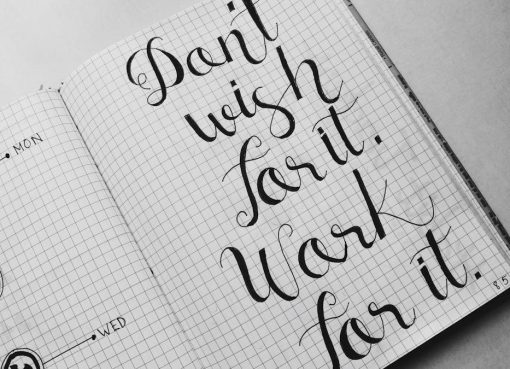 MON
WED
Don't
wish
for it.
Work
for it.